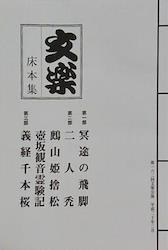 文楽
床本集
第一部
冥途の飛脚
第二部
二人禿
鶊山姫捨松
壺坂観音霊験記
第三部
義経千本桜